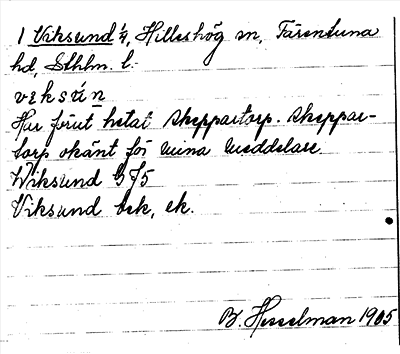 1 Viksund 1/4, Hilleshög sn, Färentuna
hd, Sthlm. l.
viksún
Har förut hetat Skeppartorp. Skeppar-
torp okänt för mina meddelare.
Wiksund GJ5
Viksund bek, ek.
B. Hesselman 1905